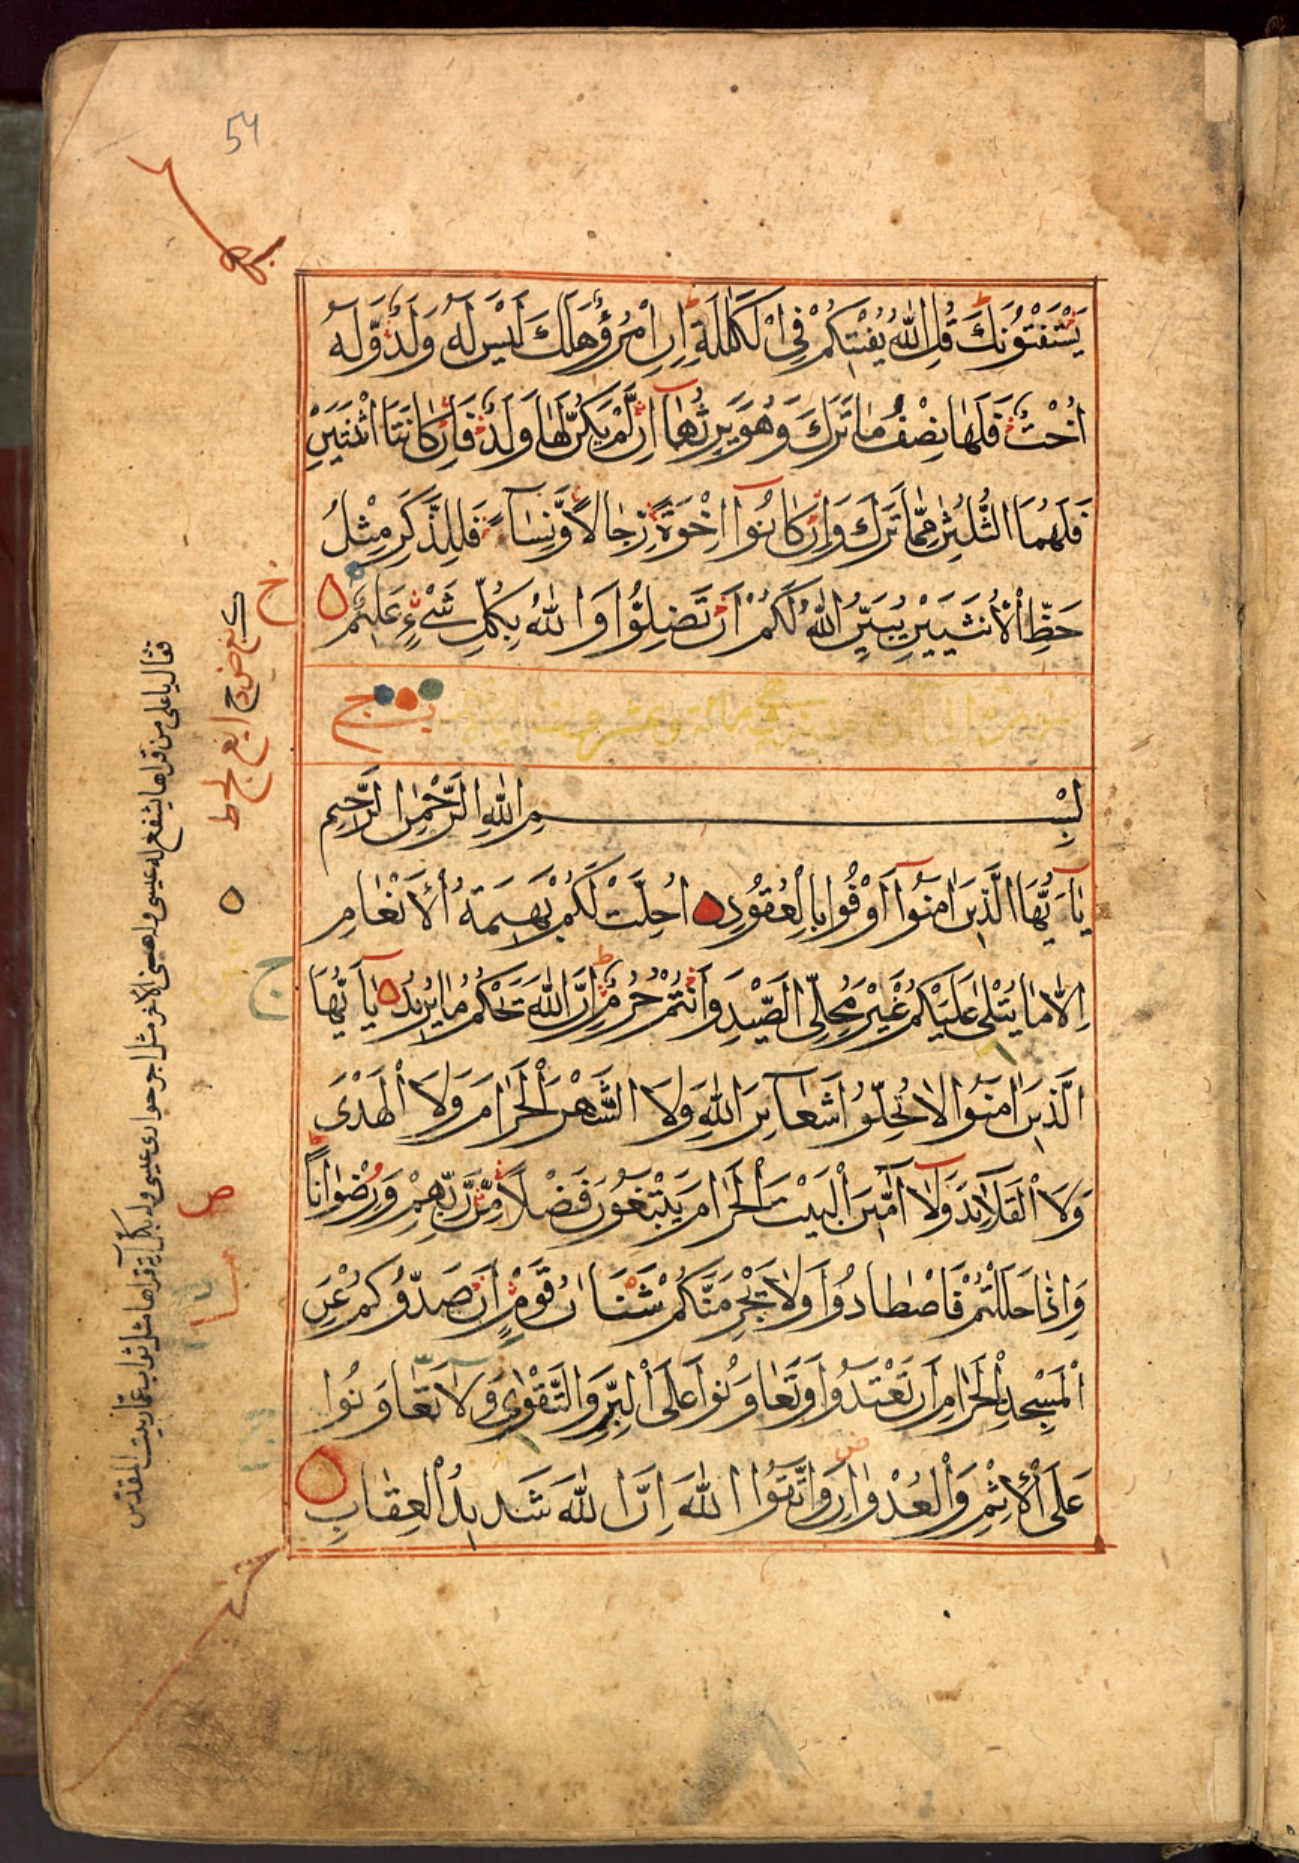 54
يَسْتَفْتُونَكَ قُلِ اللّٰهُ يُفْتِيكُمْ فِى الْكَلٰلَةِ اِنِ امْرُؤٌ هَلَكَ لَيْسَ لَهُ وَلَدٌ وَّلَهُ
اُخْتٌ فَلَهَا نِصْفُ مَا تَرَكَ وَهُوَ يَرِثُهَا اِنْ لَّمْ يَكُنْ لَّهَا وَلَدٌ فَاِنْ كَانَتَا اثْنَتَيْنِ
فَلَهُمَا الثُّلُثٰنِ مِمَّا تَرَكَ وَاِنْ كَانُوا اِخْوَةً رِّجَالًا وَّنِسَاءً فَلِلذَّكَرِ مِثْلُ
حَظِّ الْاُنْثَيَيْنِ يُبَيِّنُ اللّٰهُ لَكُمْ اَنْ تَضِلُّوْا وَاللّٰهُ بِكُلِّ شَىْءٍ عَلِيمٌ
بِسْمِ اللّٰهِ الرَّحْمٰنِ الرَّحِيمِ
يَا اَيُّهَا الَّذِينَ اٰمَنُوا اَوْفُوا بِالْعُقُودِ اُحِلَّتْ لَكُمْ بَهِيمَةُ الْاَنْعَامِ
اِلَّا مَا يُتْلٰى عَلَيْكُمْ غَيْرَ مُحِلِّى الصَّيْدِ وَاَنْتُمْ حُرُمٌ اِنَّ اللّٰهَ يَحْكُمُ مَا يُرِيدُ يَا اَيُّهَا
الَّذِينَ اٰمَنُوا لَا تُحِلُّوا شَعَائِرَ اللّٰهِ وَلَا الشَّهْرَ الْحَرَامَ وَلَا الْهَدْىَ
وَلَا الْقَلَائِدَ وَلَا اٰمِّينَ الْبَيْتَ الْحَرَامَ يَبْتَغُونَ فَضْلًا مِّنْ رَّبِّهِمْ وَرِضْوَانًا
وَاِذَا حَلَلْتُمْ فَاصْطَادُوا وَلَا يَجْرِمَنَّكُمْ شَنَاٰنُ قَوْمٍ اَنْ صَدُّوكُمْ عَنِ
الْمَسْجِدِ الْحَرَامِ اَنْ تَعْتَدُوا وَتَعَاوَنُوا عَلَى الْبِرِّ وَالتَّقْوٰى وَلَا تَعَاوَنُوا
عَلَى الْاِثْمِ وَالْعُدْوَانِ وَاتَّقُوا اللّٰهَ اِنَّ اللّٰهَ شَدِيدُ الْعِقَابِ